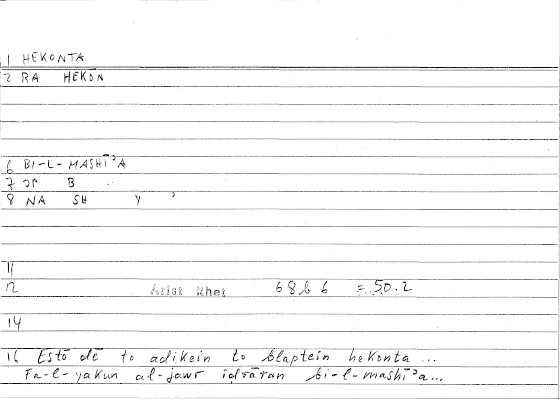 1 HEKONTA
2 RA HEKŌN
6 BI-L-MASHĪʾA
7 B
8 NA SH Y ʾ
11
12 Arist Rhet 68b6 =50.2
14
16 Estō dē to adikein to blaptein hekonta ...
Fa-l-yakun al-jawr idrāran bi-l-mashīʾa...